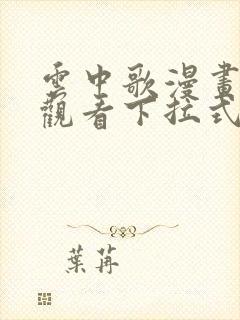 雲中歌漫畫
觀看下拉式
葉苒